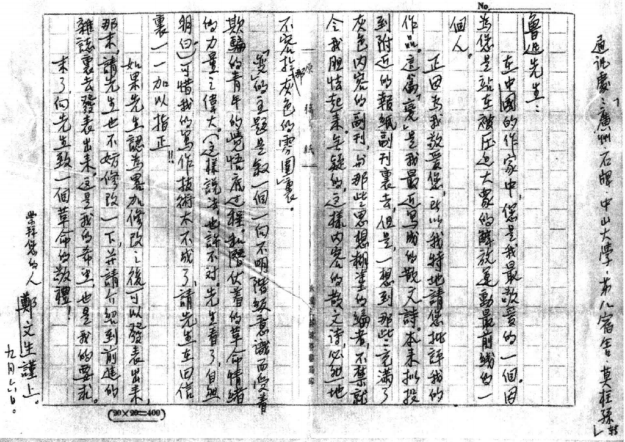 通訊處：廣州石牌中山大學第八宿舍莫柱孫轉
No.
魯迅先生：
在中國的作家中，您是我最敬愛的一個。因
為您是站在被压迫大衆的解放運動最前線的一
個人。
正因為我敬愛您，所以我特地請您批評我的
作品。這篇「變」是我最近寫成的散文詩，本来擬投
到附近的報紙副刊裏去，但是，一想到那些充滿了
灰色内容的副刊，与那些思想糊塗的编者，不禁
令我胆怯起来，無疑的這樣内容的散文诗必然地
不容於那灰色的雰圍裏。
「變」的主題是叙一個一向不明階級意識而受着
欺騙的青年的覺悟底过程，和隱伏着的革命情绪
的力量之偉大（這樣說法也許不对，先生看了，自然
明白）可惜我的寫作技術太不成了，請先生在回信
裏一一加以指正！！
如果先生認為畧加修改之後可以發表出来，
那末，請先生也不妨修改一下，并請介紹到前進的
雜誌裏去發表出来，這是我的希望，也是我的要求。
末了，向先生致一個革命的敬禮！
崇拜您的人 鄭文生謹上。
九月六日。
(20×20=400)